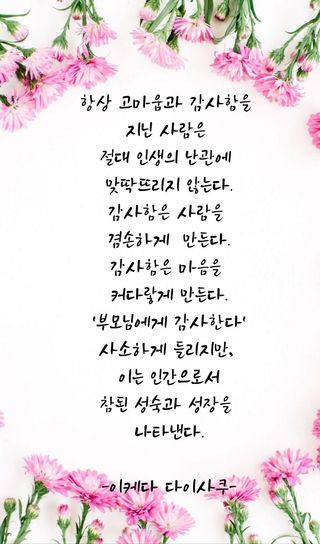 항상 고마움과 감사함을
지닌 사람은
절대 인생의 난관에
맞딱뜨리지 않는다.
감사함은 사람을
겸손하게 만든다.
감사함은 마음을
커다랗게 만든다.
'부모님에게 감사한다'
사소하게 들리지만,
이는 인간으로서
참된 성숙과 성장을
나타낸다.
-이케다 다이사쿠-